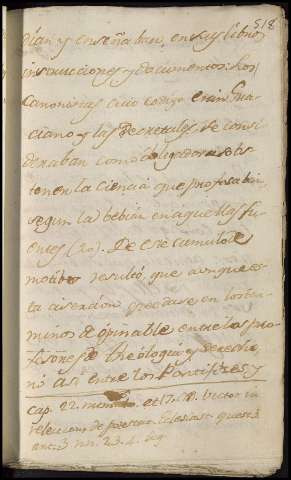 518
dian y enseñaban, en sus libros,
instrucciones y documentos: los
Canonistas cuio codigo eran Gra
ciano y las Decretales, se consi
deraban como obligados a sos
tener la ciencia que profesaban,
segun la bebian en aquellas fu
entes (20). De este cumulo de
motibos resultó que aunque es
ta aisercion quedase en los ter
minos de opinable entre los pro
fesores de theologia y derecho,
no asi entre los Pontifices y
cap. 22. et 17. Victor in
relecciones de potestate Eclesiast. quest. 3
art. 3 nn. 23. 4. seq.